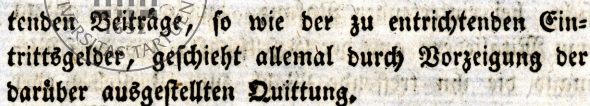 tenden Beiträge, so wie der zu entrichtenden Ein-
trittsgelder, geschieht allemal durch Vorzeigung der
darüber ausgestellten Quittung.